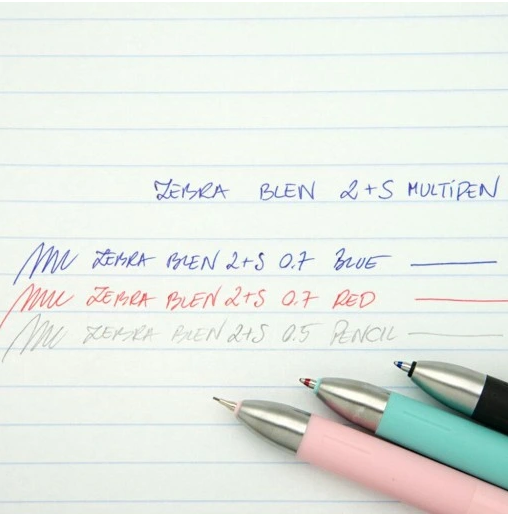 ZEBRA BLEN 2+S MULTIPEN
ZEBRA BLEN 2+S 0.7 BLUE
ZEBRA BLEN 2+S 0.7 RED
ZEBRA BLEN 2+S 0.5 PENCIL